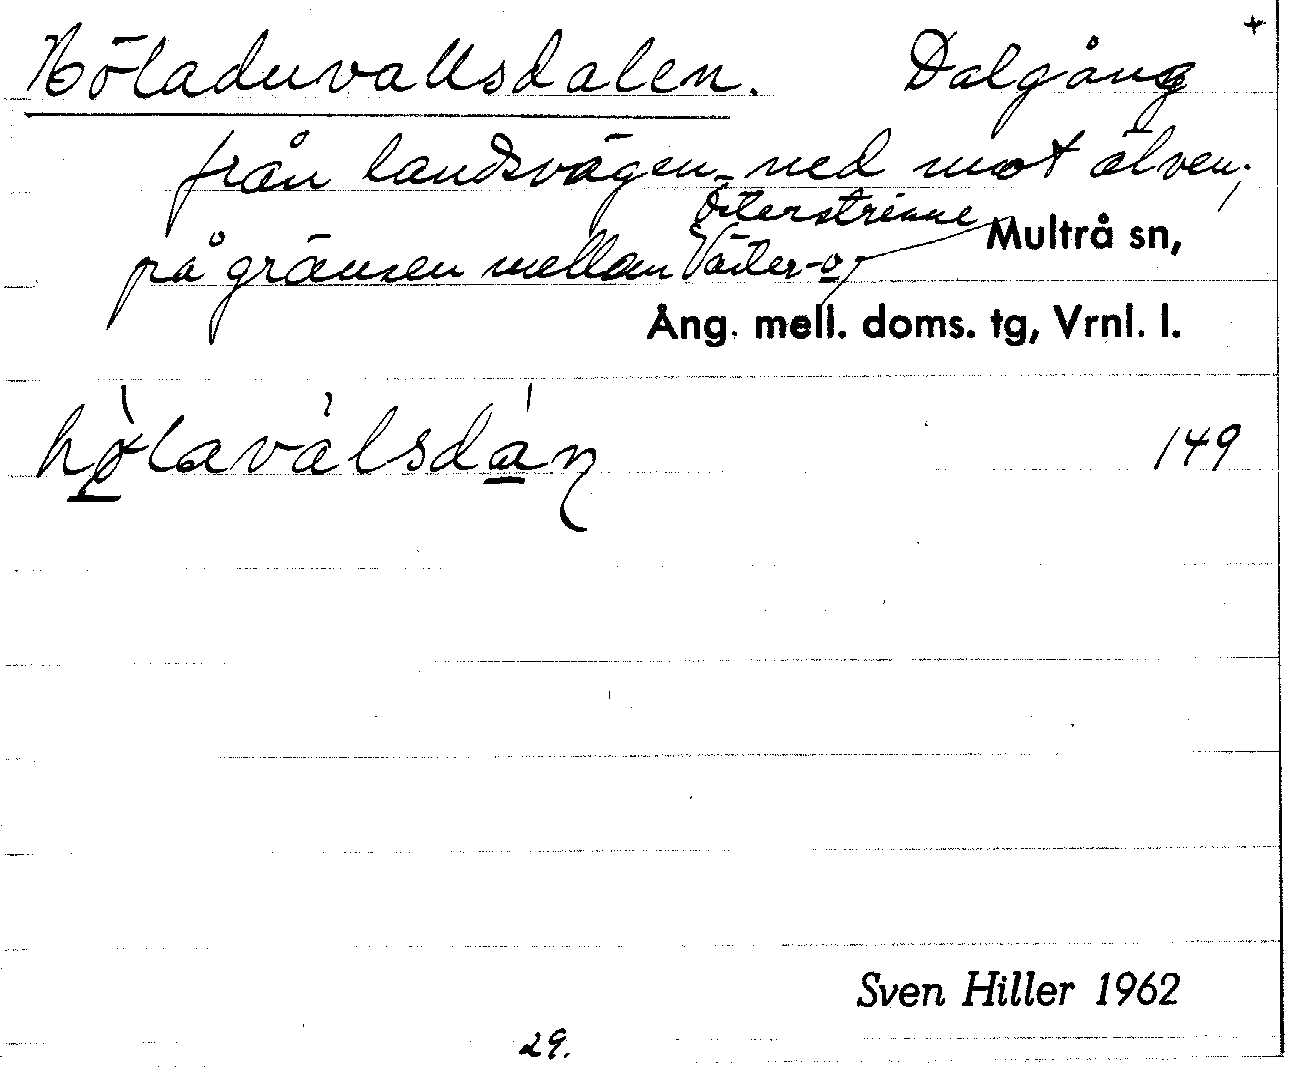 Höladuvallsdalen. Dalgång +
från landsvägen ned mot älven,
Österstrinne
på gränsen mellan Väster- o
Multrå sn,
Ång. mell. doms. tg, Vrnl. l.
149
Sven Hiller 1962
29.